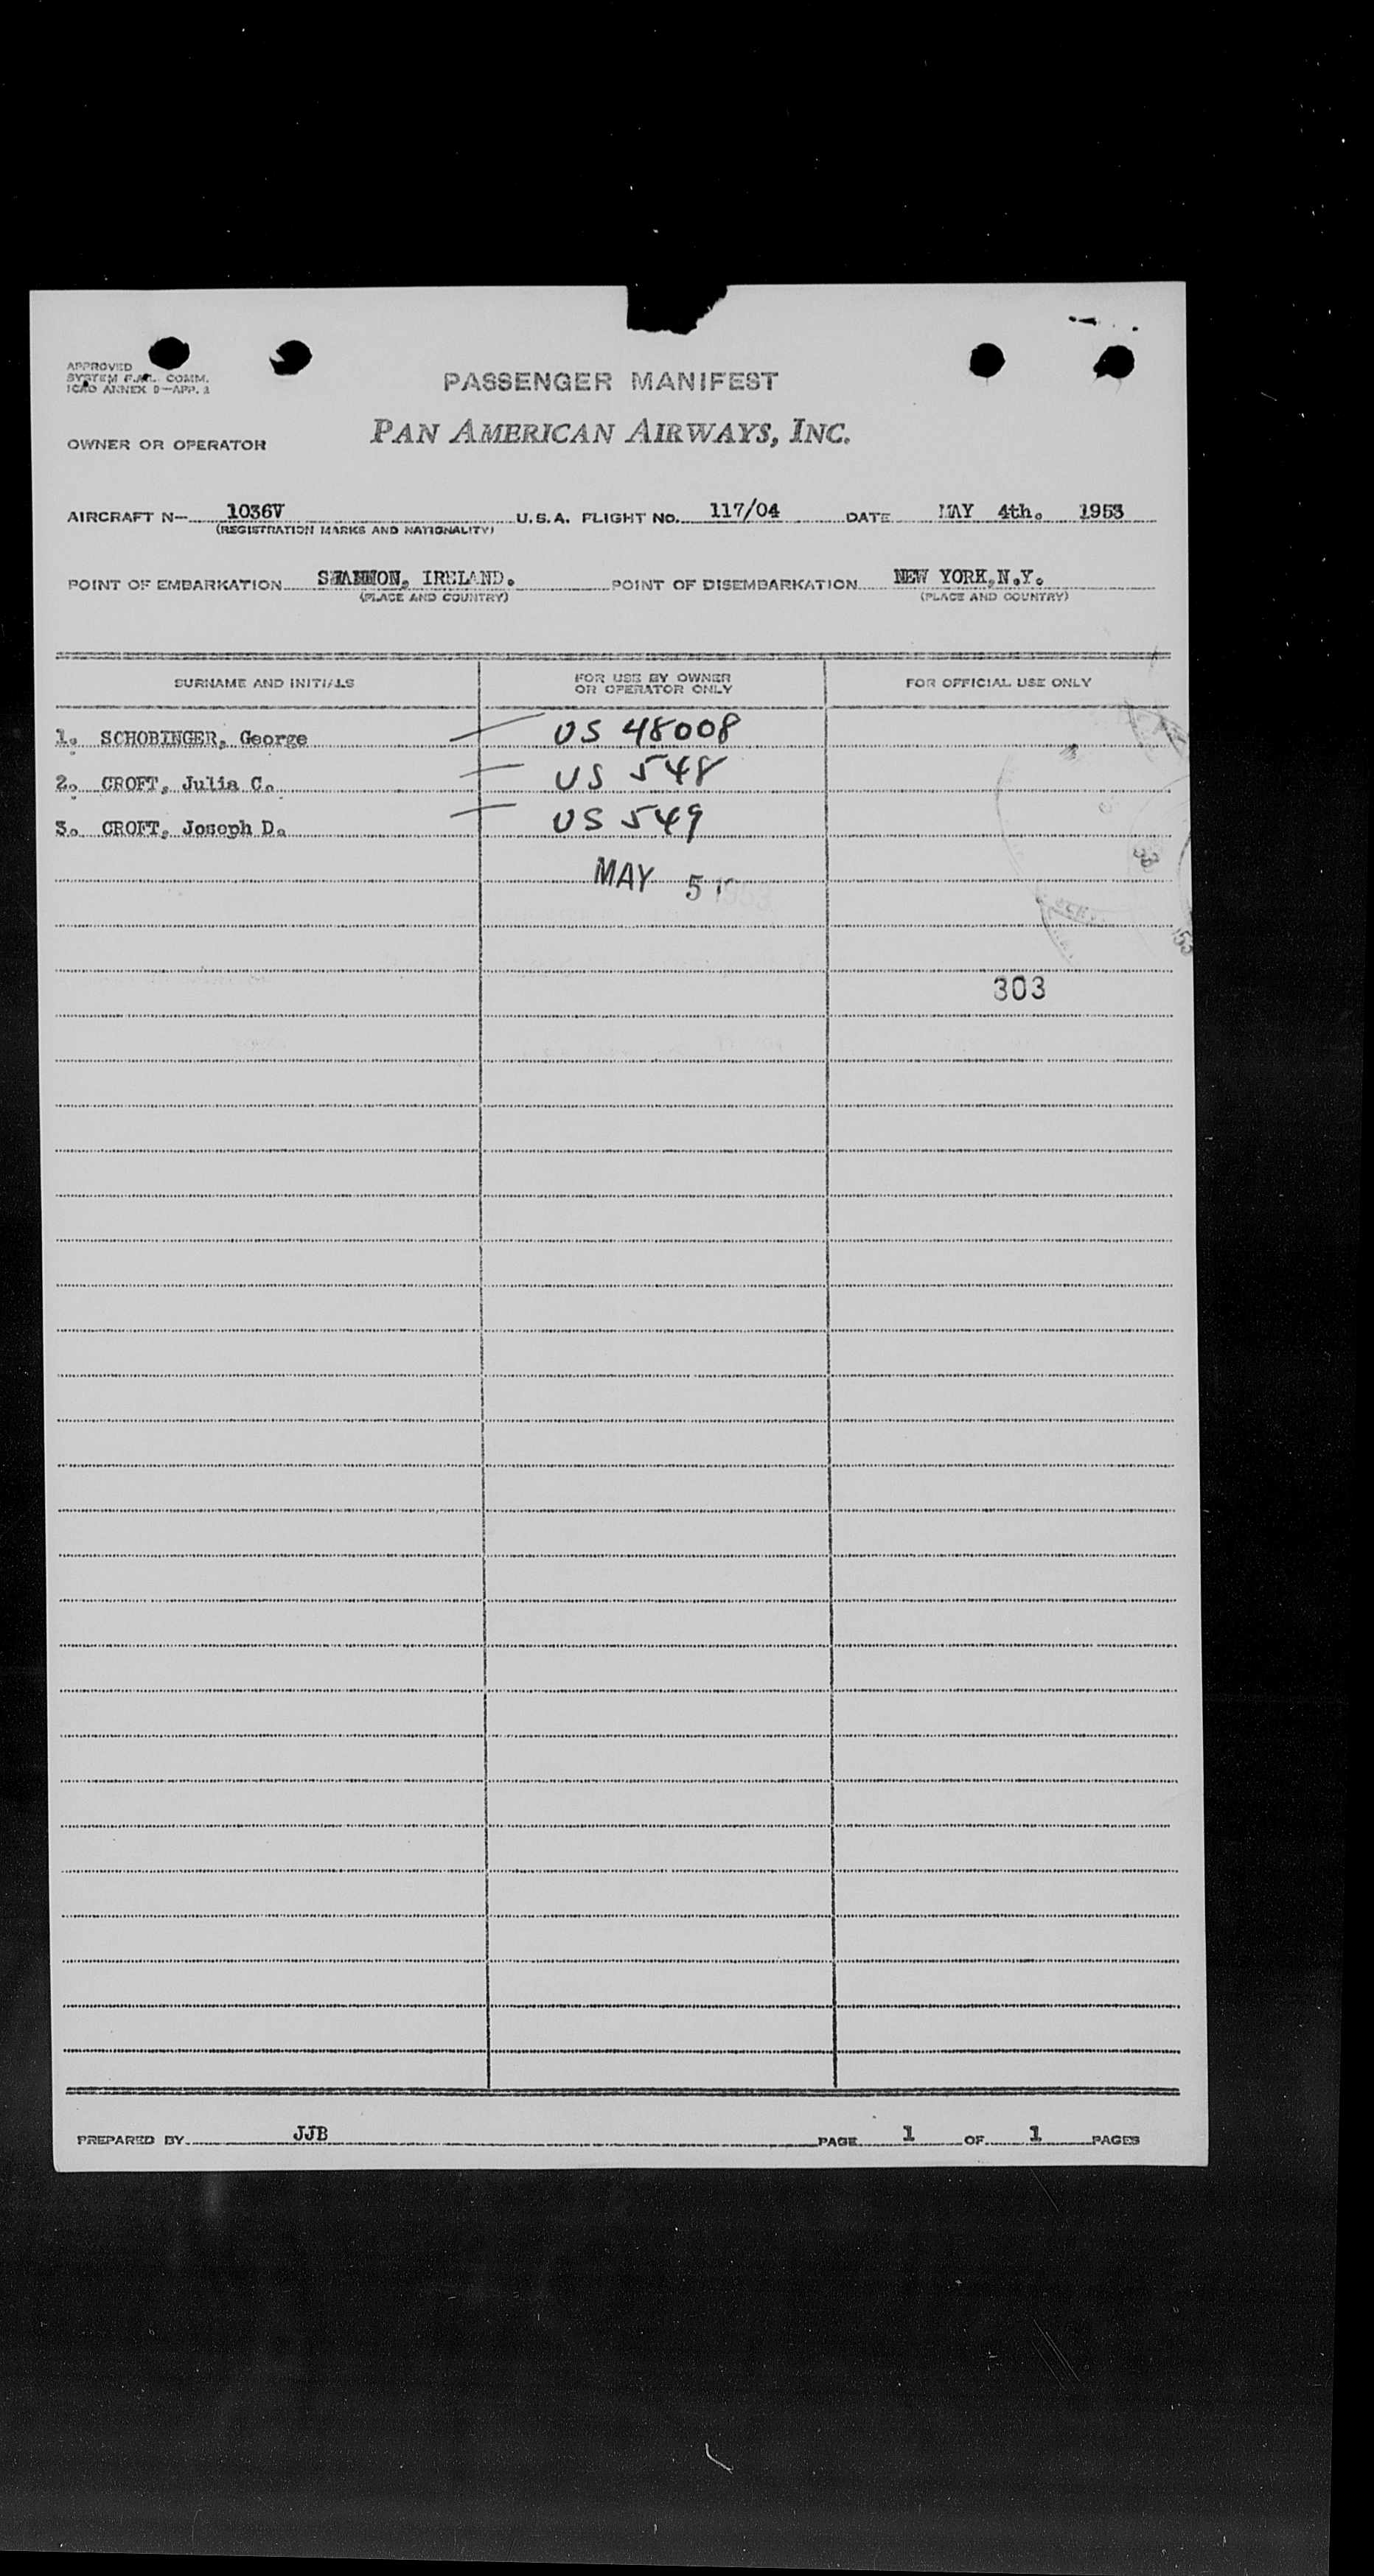 APPROVED
SYSTEM FAL. COMM.
ICAO ANNEX 9—APP. 2
PASSENGER MANIFEST
OWNER OR OPERATOR
PAN AMERICAN AIRWAYS, INC.
AIRCRAFT N— 1036V U.S.A. FLIGHT NO. 117/04 DATE MAY 4th. 1953
(REGISTRATION MARKS AND NATIONALITY)
POINT OF EMBARKATION SHANNON, IRELAND. POINT OF DISEMBARKATION NEW YORK,N.Y.
(PLACE AND COUNTRY) (PLACE AND COUNTRY)
SURNAME AND INITIALS FOR USE BY OWNER OR OPERATOR ONLY FOR OFFICIAL USE ONLY
1. SCHOBINGER, George US 48008
2. CROFT, Julia C. US 548
3. CROFT, Joseph D. US 549
MAY 5 1953
303
PREPARED BY JJB PAGE 1 OF 1 PAGES